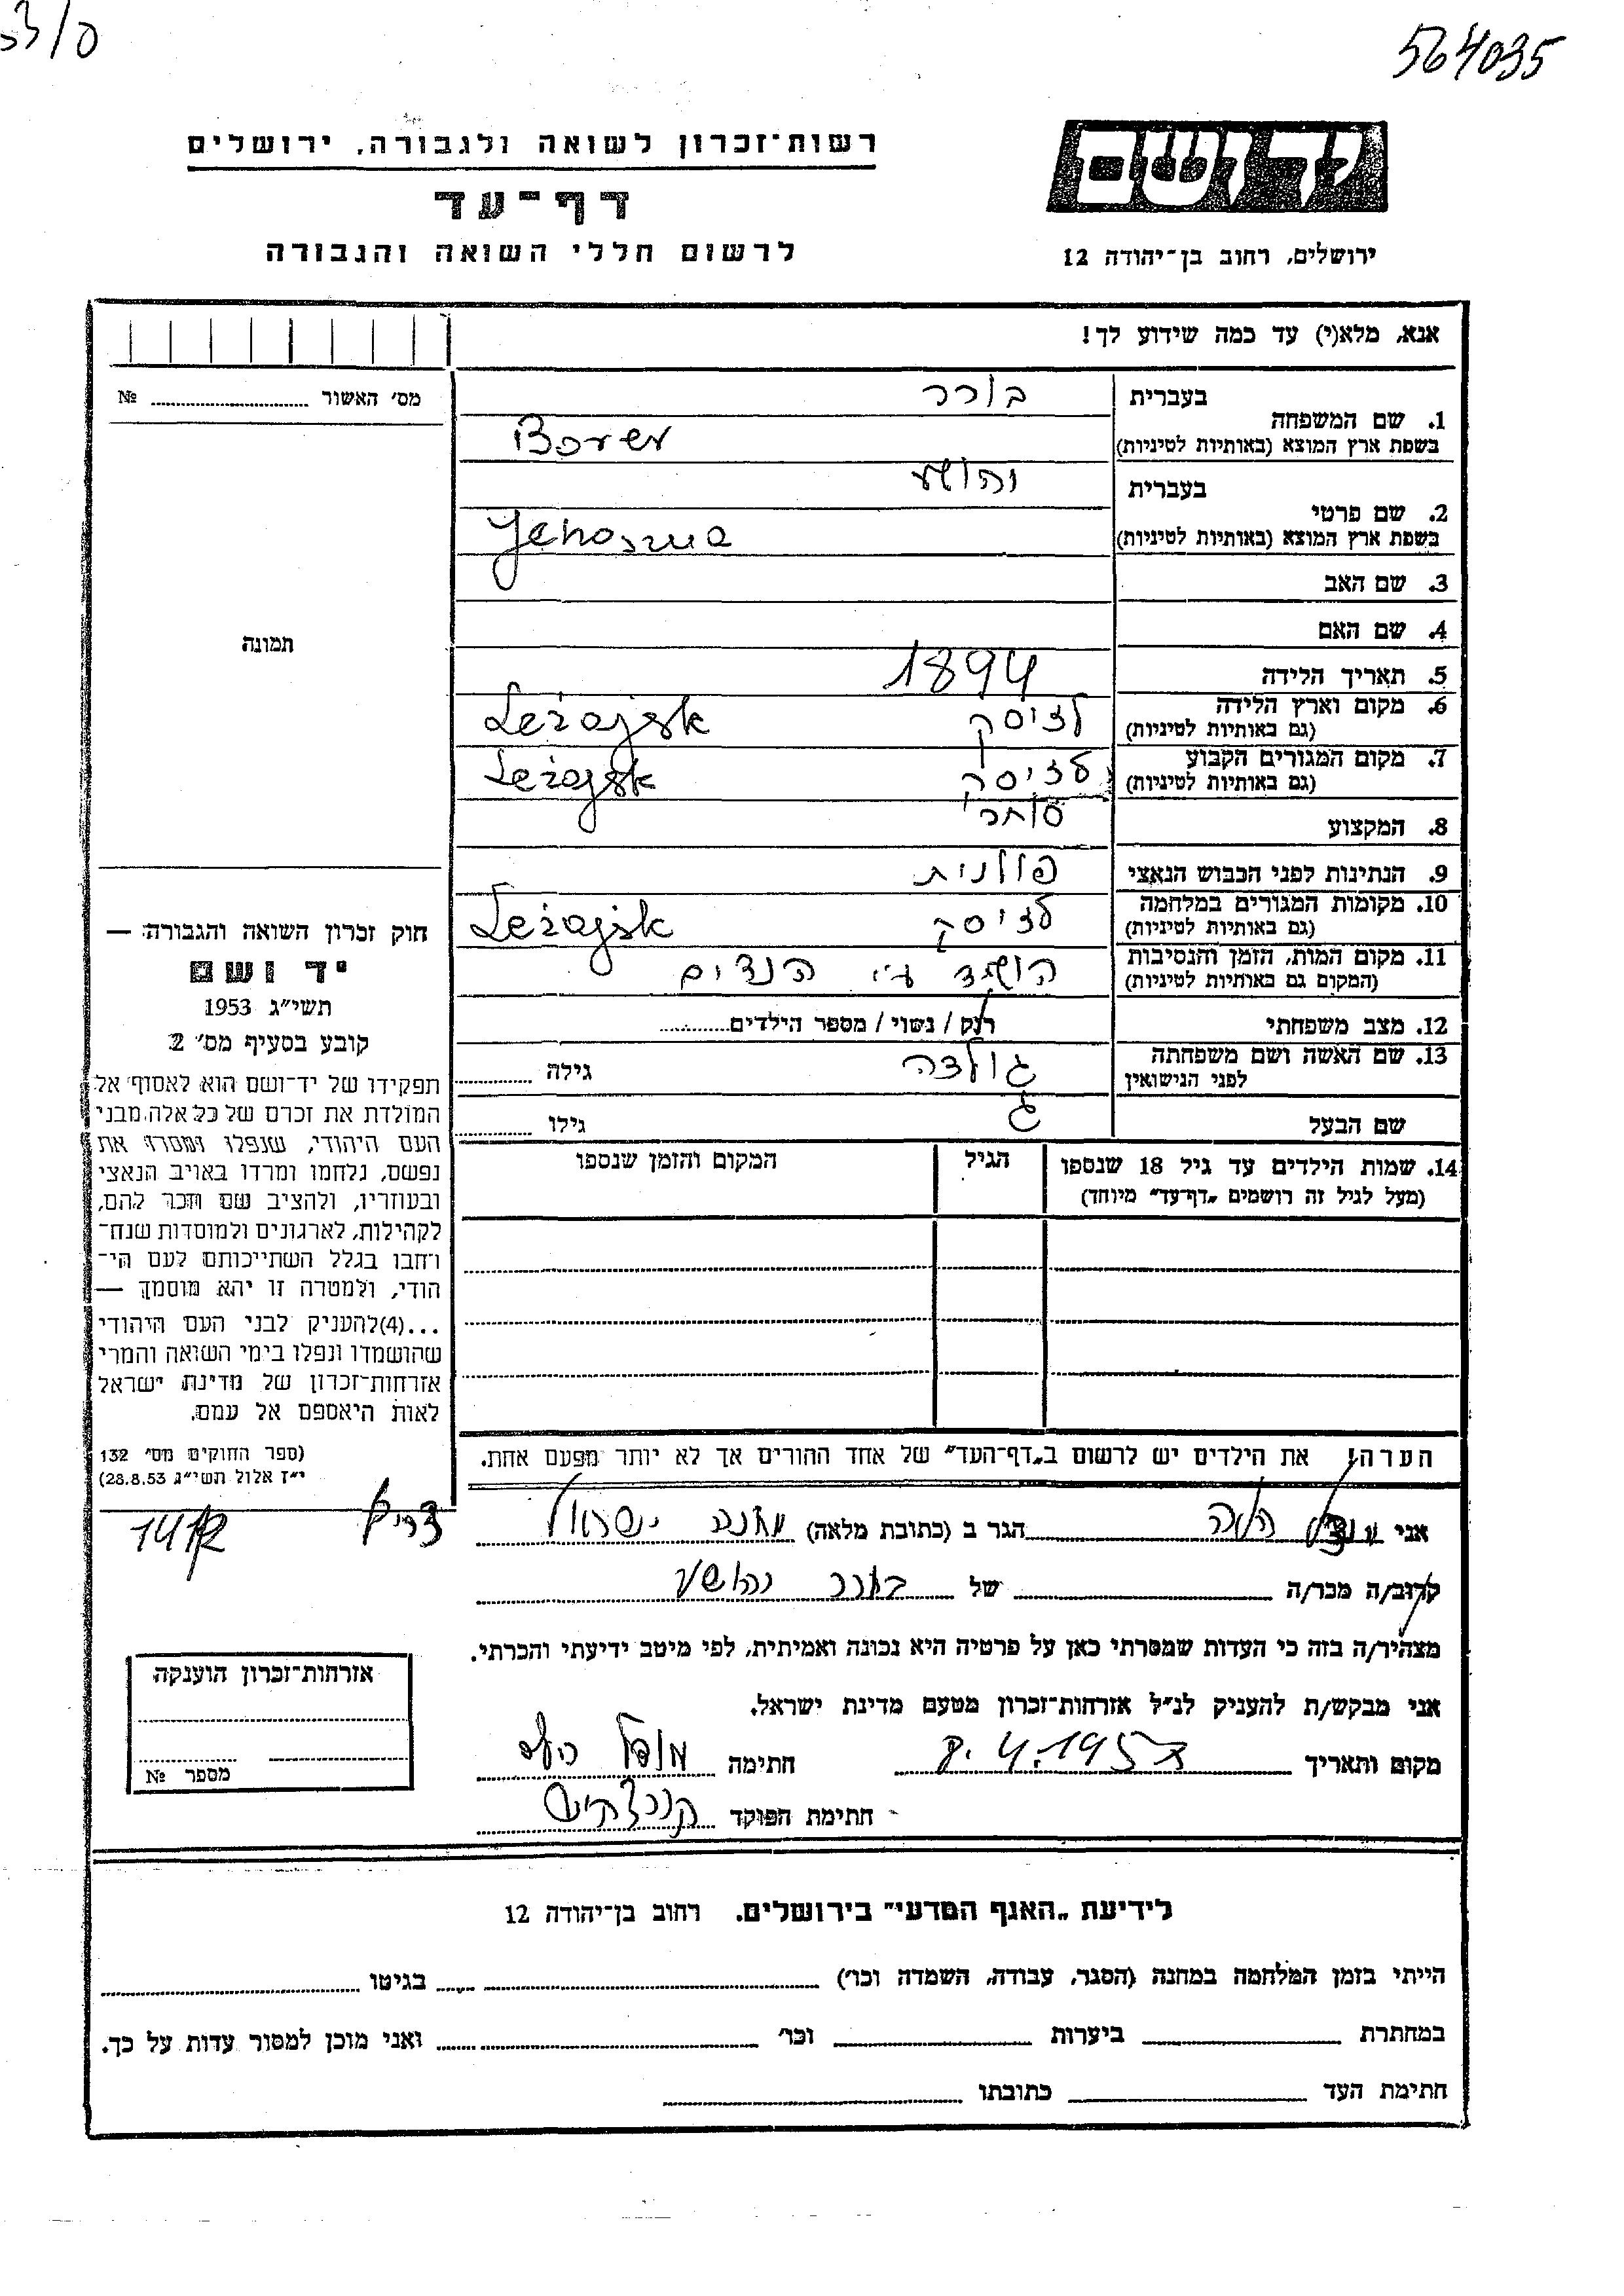 33/0
564035
יד ושם
רשות־זכרון לשואה ולגבורה, ירושלים
דף־עד
לרשום חללי השואה והגבורה
ירושלים, רחוב בן־יהודה 12
אנא, מלא(י) עד כמה שידוע לך!
מס׳ האשור № 
1. שם המשפחה
בעברית בורר
בשפת ארץ המוצא (באותיות לטיניות) Borer
2. שם פרטי
בעברית יהושע
בשפת ארץ המוצא (באותיות לטיניות) Jehoszua
3. שם האב
4. שם האם
5. תאריך הלידה 1894
6. מקום וארץ הלידה
(גם באותיות לטיניות) לזיסק Leżajsk
7. מקום המגורים הקבוע
(גם באותיות לטיניות) לזיסק Leżajsk
8. המקצוע סוחר
9. הנתינות לפני הכבוש הנאצי פולנית
10. מקומות המגורים במלחמה
(גם באותיות לטיניות) לזיסק Leżajsk
11. מקום המות, הזמן והנסיבות
(המקום גם באותיות לטיניות) הושמד ע״י הנצים
12. מצב משפחתי רוק / נשוי / מספר הילדים
13. שם האשה ושם משפחתה
לפני הנישואין גולדה גילה
שם הבעל גילו
14. שמות הילדים עד גיל 18 שנספו
(מעל לגיל זה רושמים „דף־עד״ מיוחד)
הגיל
המקום והזמן שנספו
תמונה
חוק זכרון השואה והגבורה —
יד ושם
תשי״ג 1953
קובע בסעיף מס׳ 2
תפקידו של יד־ושם הוא לאסוף אל
המולדת את זכרם של כל אלה מבני
העם היהודי, שנפלו ומסרו את
נפשם, נלחמו ומרדו באויב הנאצי
ובעוזריו, ולהציב שם וזכר להם,
לקהילות, לארגונים ולמוסדות שנח־
רחבו בגלל השתייכותם לעם הי־
הודי, ולמטרה זו יהא מוסמך —
...(4) להעניק לבני העם היהודי
שהושמדו ונפלו בימי השואה והמרי
אזרחות־זכרון של מדינת ישראל
לאות היאספם אל עמם.
(ספר החוקים מס׳ 132
י״ז אלול תשי״ג 28.8.53)
הערה! את הילדים יש לרשום ב„דף־העד״ של אחד ההורים אך לא יותר מפעם אחת.
אני הגר ב (כתובת מלאה) מחנה ישראל
קרוב/ה מכר/ה של בורר יהושע
מצהיר/ה בזה כי העדות שמסרתי כאן על פרטיה היא נכונה ואמיתית, לפי מיטב ידיעתי והכרתי.
אני מבקש/ת להעניק לנ״ל אזרחות־זכרון מטעם מדינת ישראל.
מקום ותאריך חתימה
חתימת הפוקד
אזרחות־זכרון הוענקה
מספר №
לידיעת „האגף המדעי״ בירושלים. רחוב בן־יהודה 12
הייתי בזמן המלחמה במחנה (הסגר, עבודה, השמדה וכו׳) בגיטו
במחתרת ביערות וכו׳ ואני מוכן למסור עדות על כך.
חתימת העד כתובתו